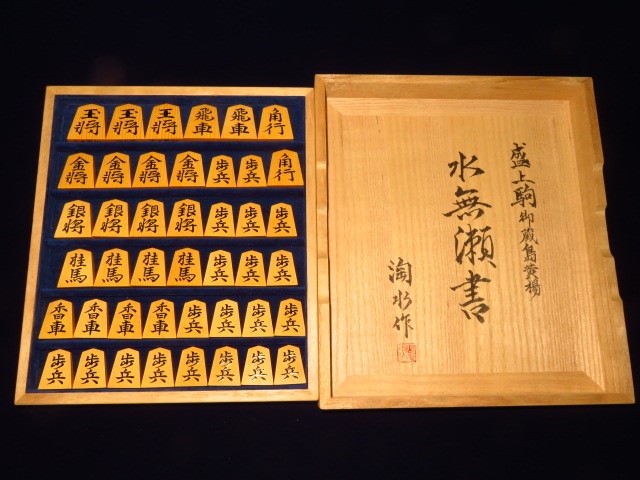 玉将 玉将 王将 飛車 飛車 角行
金将 金将 金将 金将 歩兵 歩兵 角行
銀将 銀将 銀将 銀将 歩兵 歩兵 歩兵
桂馬 桂馬 桂馬 桂馬 歩兵 歩兵 歩兵
香車 香車 香車 香車 歩兵 歩兵 歩兵 歩兵
歩兵 歩兵 歩兵 歩兵 歩兵 歩兵 歩兵 歩兵
盛上駒 御蔵島黄楊
水無瀬書
淘水作